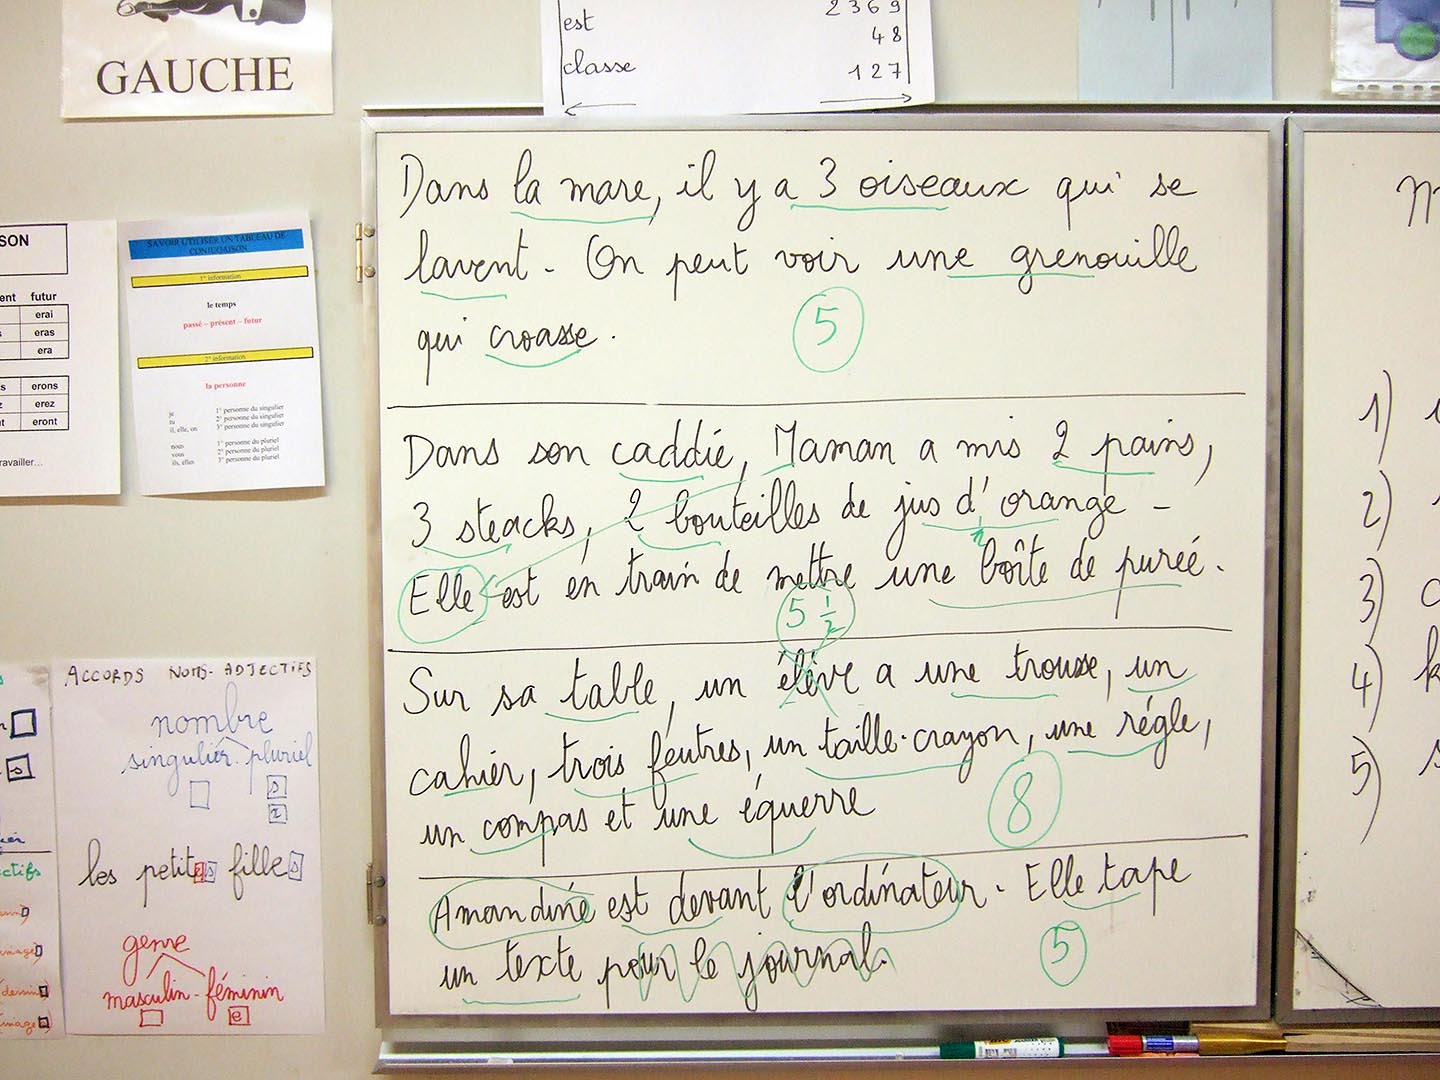 GAUCHE
est 2369
48
classe 127
SON
ent futur
erai
s eras
era
s erons
z erez
t eront
ravailler...
SAVOIR UTILISER UN TABLEAU DE
CONJUGAISON
1° information
le temps
passé – présent – futur
2° information
la personne
je 1° personne du singulier
tu 2° personne du singulier
il, elle, on 3° personne du singulier
nous 1° personne du pluriel
vous 2° personne du pluriel
ils, elles 3° personne du pluriel
ACCORDS NOMS-ADJECTIFS
nombre
singulier-pluriel
s
x
les petites filles
genre
masculin-féminin
e
s
ctifs
Dans la mare, il y a 3 oiseaux qui se
lavent. On peut voir une grenouille
qui croasse.
5
Dans son caddié, Maman a mis 2 pains,
3 steacks, 2 bouteilles de jus d'orange -
Elle est en train de mettre une boîte de pureé.
5 1/2
Sur sa table, un élève a une trousse, un
cahier, trois feutres, un taille-crayon, une régle,
un compas et une équerre
8
Amandine est devant l'ordinateur. Elle tape
un texte pour le journal.
5
1)
2)
3)
4)
5)